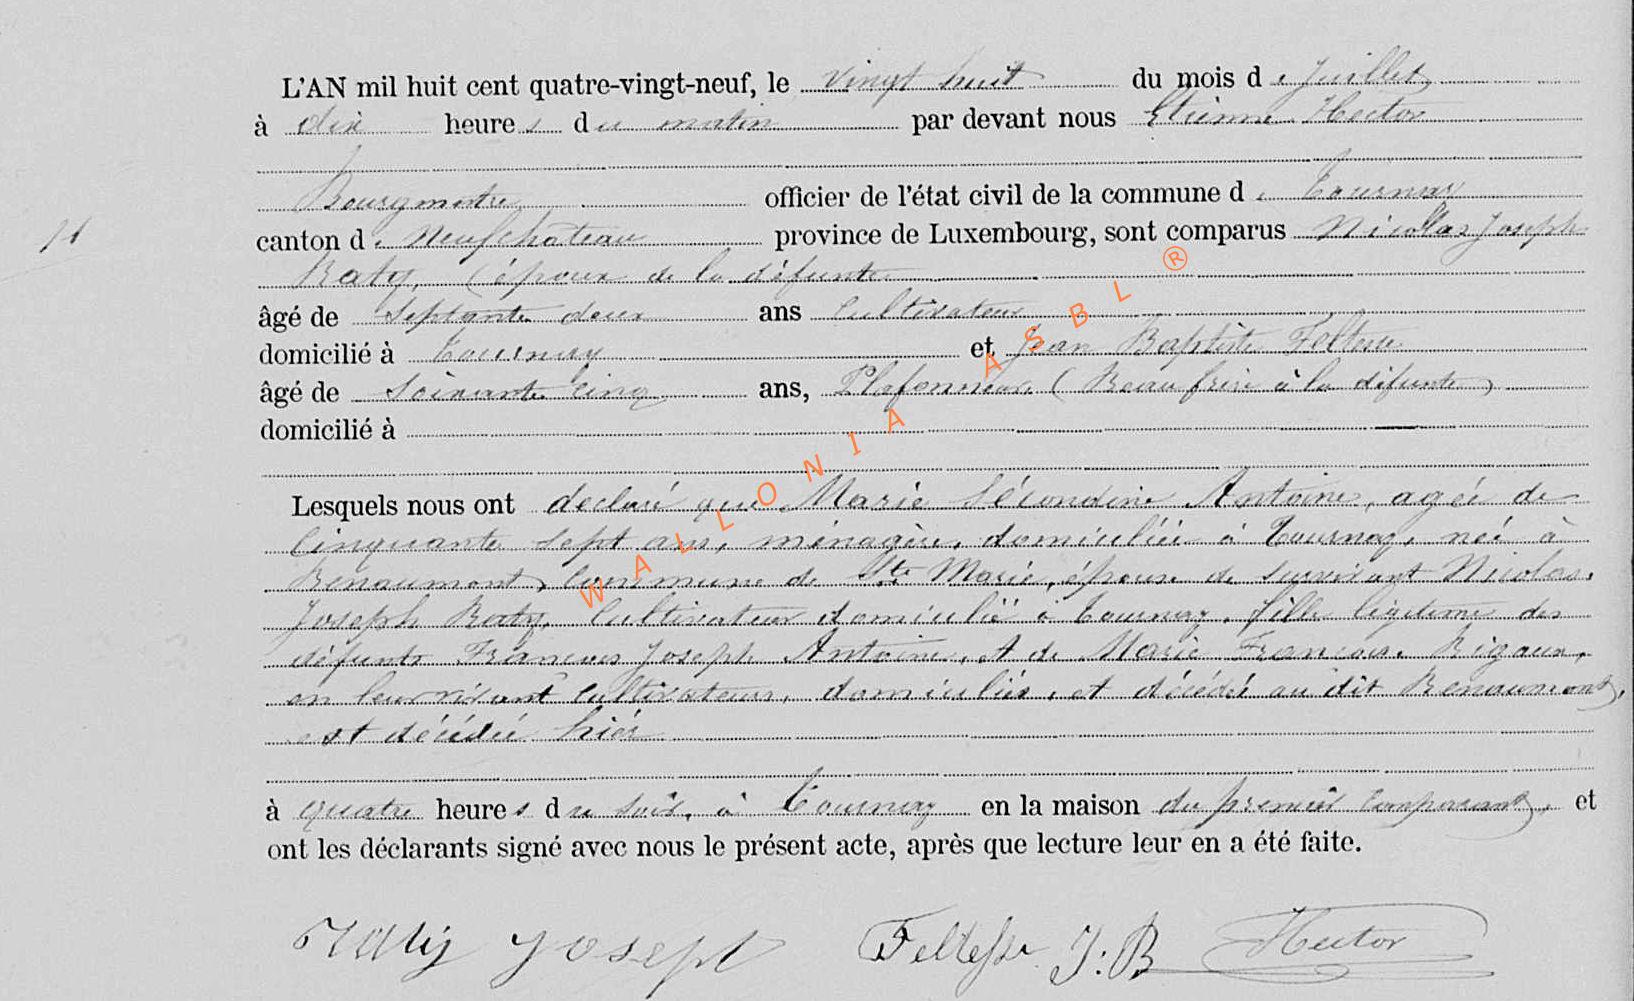 L'AN mil huit cent quatre-vingt-neuf, le vingt huit du mois de Juillet
à dix heures du matin par devant nous Etienne Hector
Bourgmestre officier de l'état civil de la commune de Tournay
canton de Neufchateau province de Luxembourg, sont comparus Nicollas Joseph
Raty, (époux de la défunte
âgé de septante deux ans Cultivateur
domicilié à Tournay et Jean Baptiste Feltesse
âgé de soixante cinq ans, Plafonneur (Beau frère à la défunte)
domicilié à
Lesquels nous ont declaré que Marie Sécondine Antoine, agée de
Cinquante sept ans, ménagère, domiciliée à Tournay, née à
Benaumont, Commune de Ste Marie, épouse de survivant Nicolas
Joseph Raty, Cultivateur domicilié à Tournay, fille légitime des
défunts François Joseph Antoine, et de Marie Françoise Rigaux,
en leur vivant Cultivateurs, domiciliés, et décédés au dit Benaumont,
est décédée hiér
à quatre heures du soir, à Tournay en la maison du premier Comparant, et
ont les déclarants signé avec nous le présent acte, après que lecture leur en a été faite.
Raty Joseph Feltesse J:B Hector
WALLONIA ASBL ®